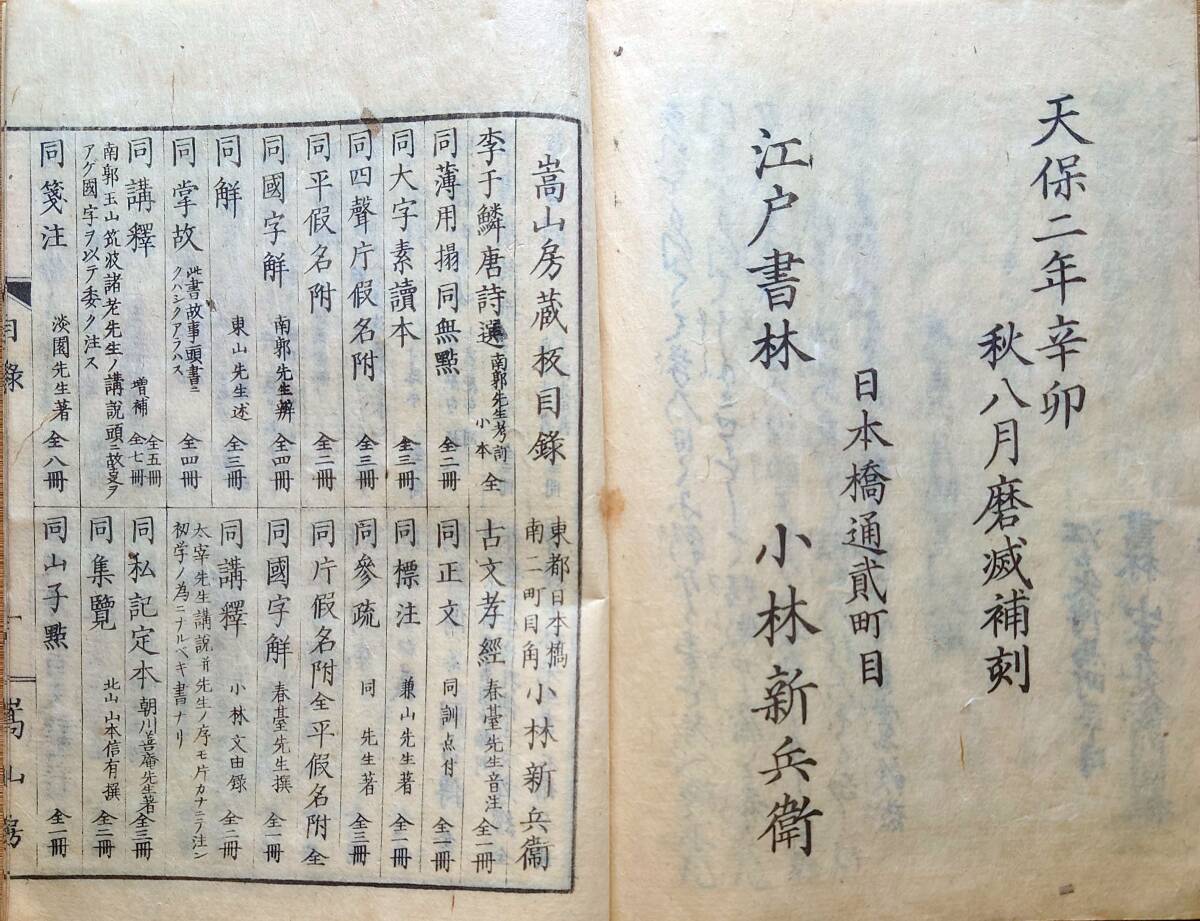 天保二年辛卯
秋八月磨滅補刻
日本橋通貳町目
江戸書林　小林新兵衛
嵩山房蔵板目錄　東都日本橋南二町目角　小林新兵衞
李于鱗唐詩選　南郭先生考訂　小本　全
同薄用搨同無點　全二冊
同大字素讀本　全三冊
同四聲片假名附　全三冊
同平假名附　全二冊
同國字解　南郭先生辨　全四冊
同解　東山先生述　全三冊
同掌故　此書故事ヲ頭書ニクハシクアラハス　全四冊
同講釋　増補　全五冊　全七冊
南郭玉山筑波諸老先生ノ講説頭ニ故叓ヲ
アゲ國字ヲ以テ委ク注ス
同箋注　淡園先生著　全八冊
古文孝經　春臺先生音注　全一冊
同正文　同訓点付　全一冊
同標注　兼山先生著　全一冊
同參疏　同先生著　全三冊
同片假名附全平假名附　全
同國字解　春臺先生撰　全一冊
同講釋　小林文由録　全二冊
太宰先生講説并先生ノ序モ片カナニテ注シ
初学ノ為ニナルベキ書ナリ
同私記定本　朝川善庵先生著　全三冊
同集覽　北山山本信有撰　全二冊
同山子點　全一冊
目錄　一　嵩山房